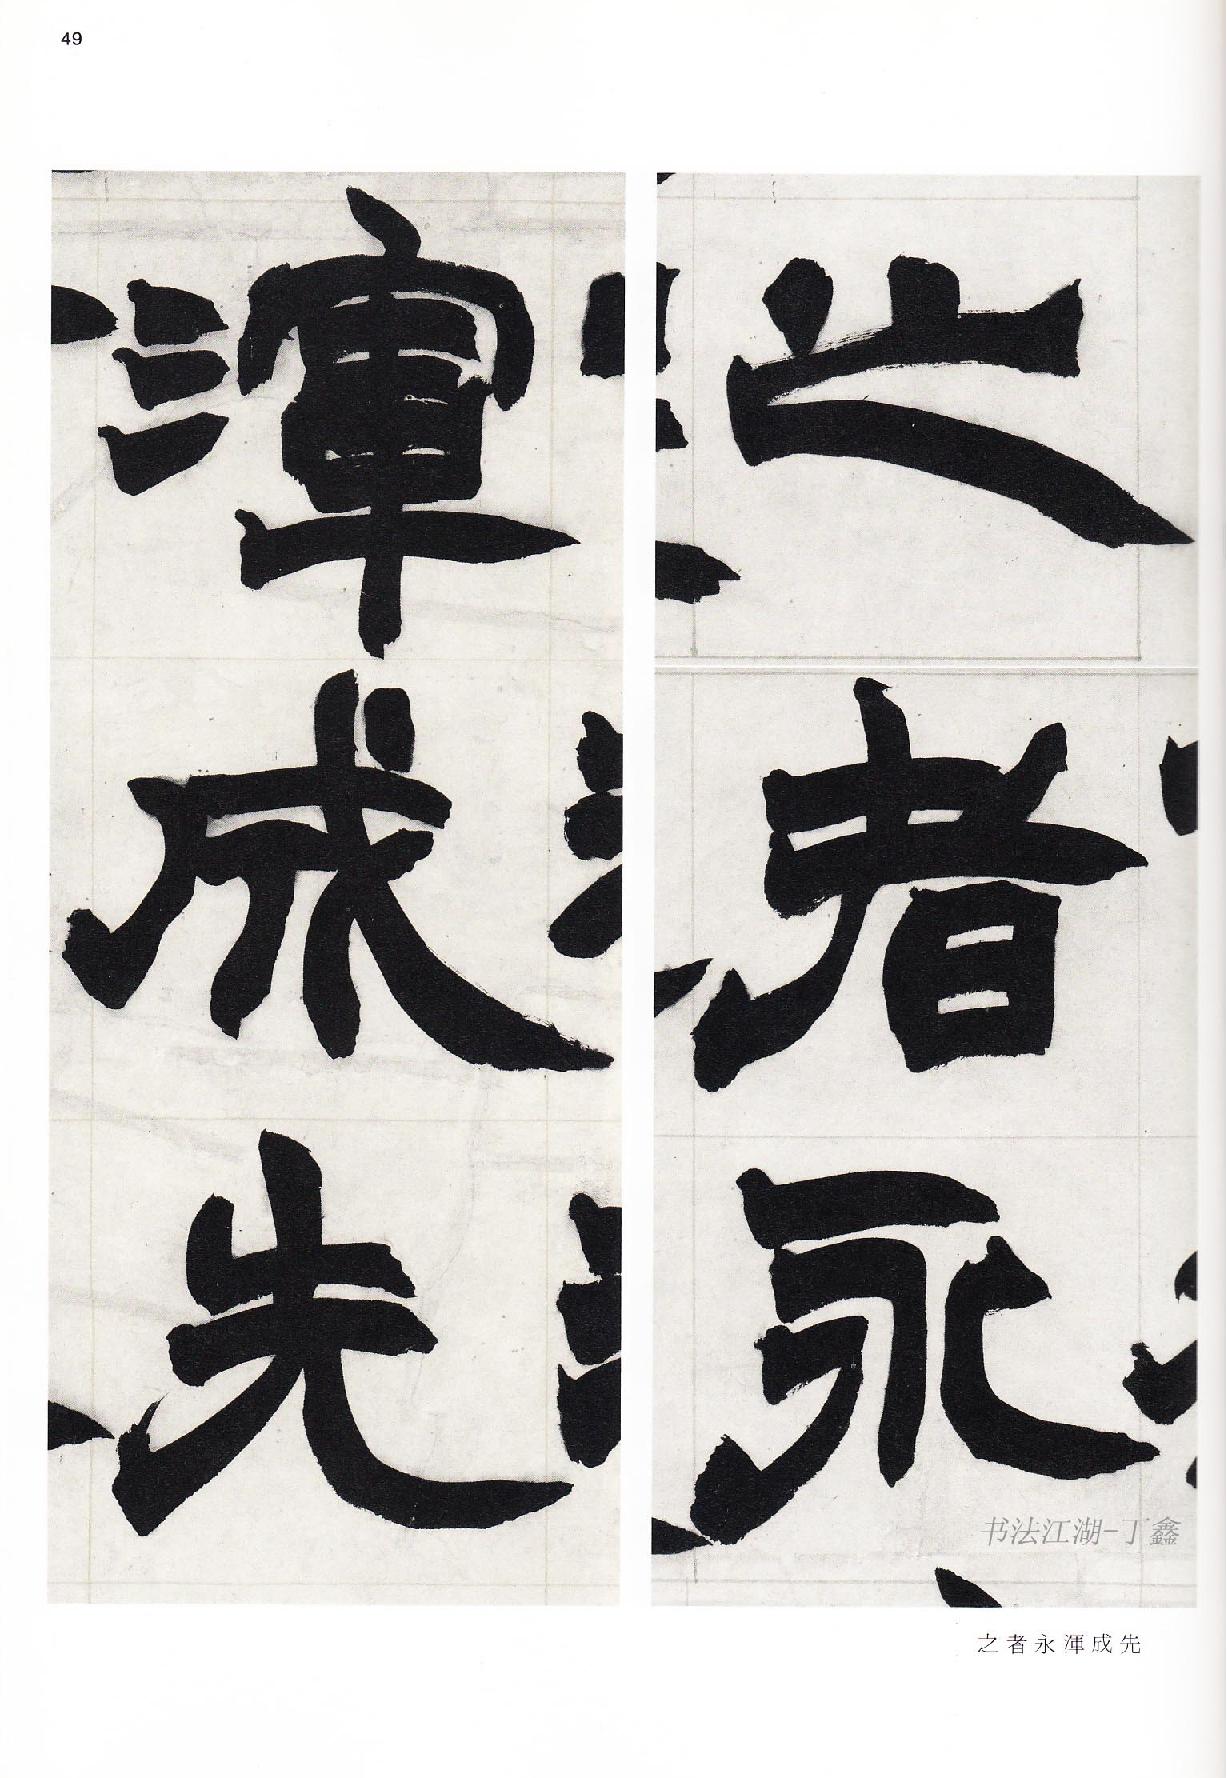 49
之
者
永
渾
成
先
书法江湖-丁鑫
之者永渾成先